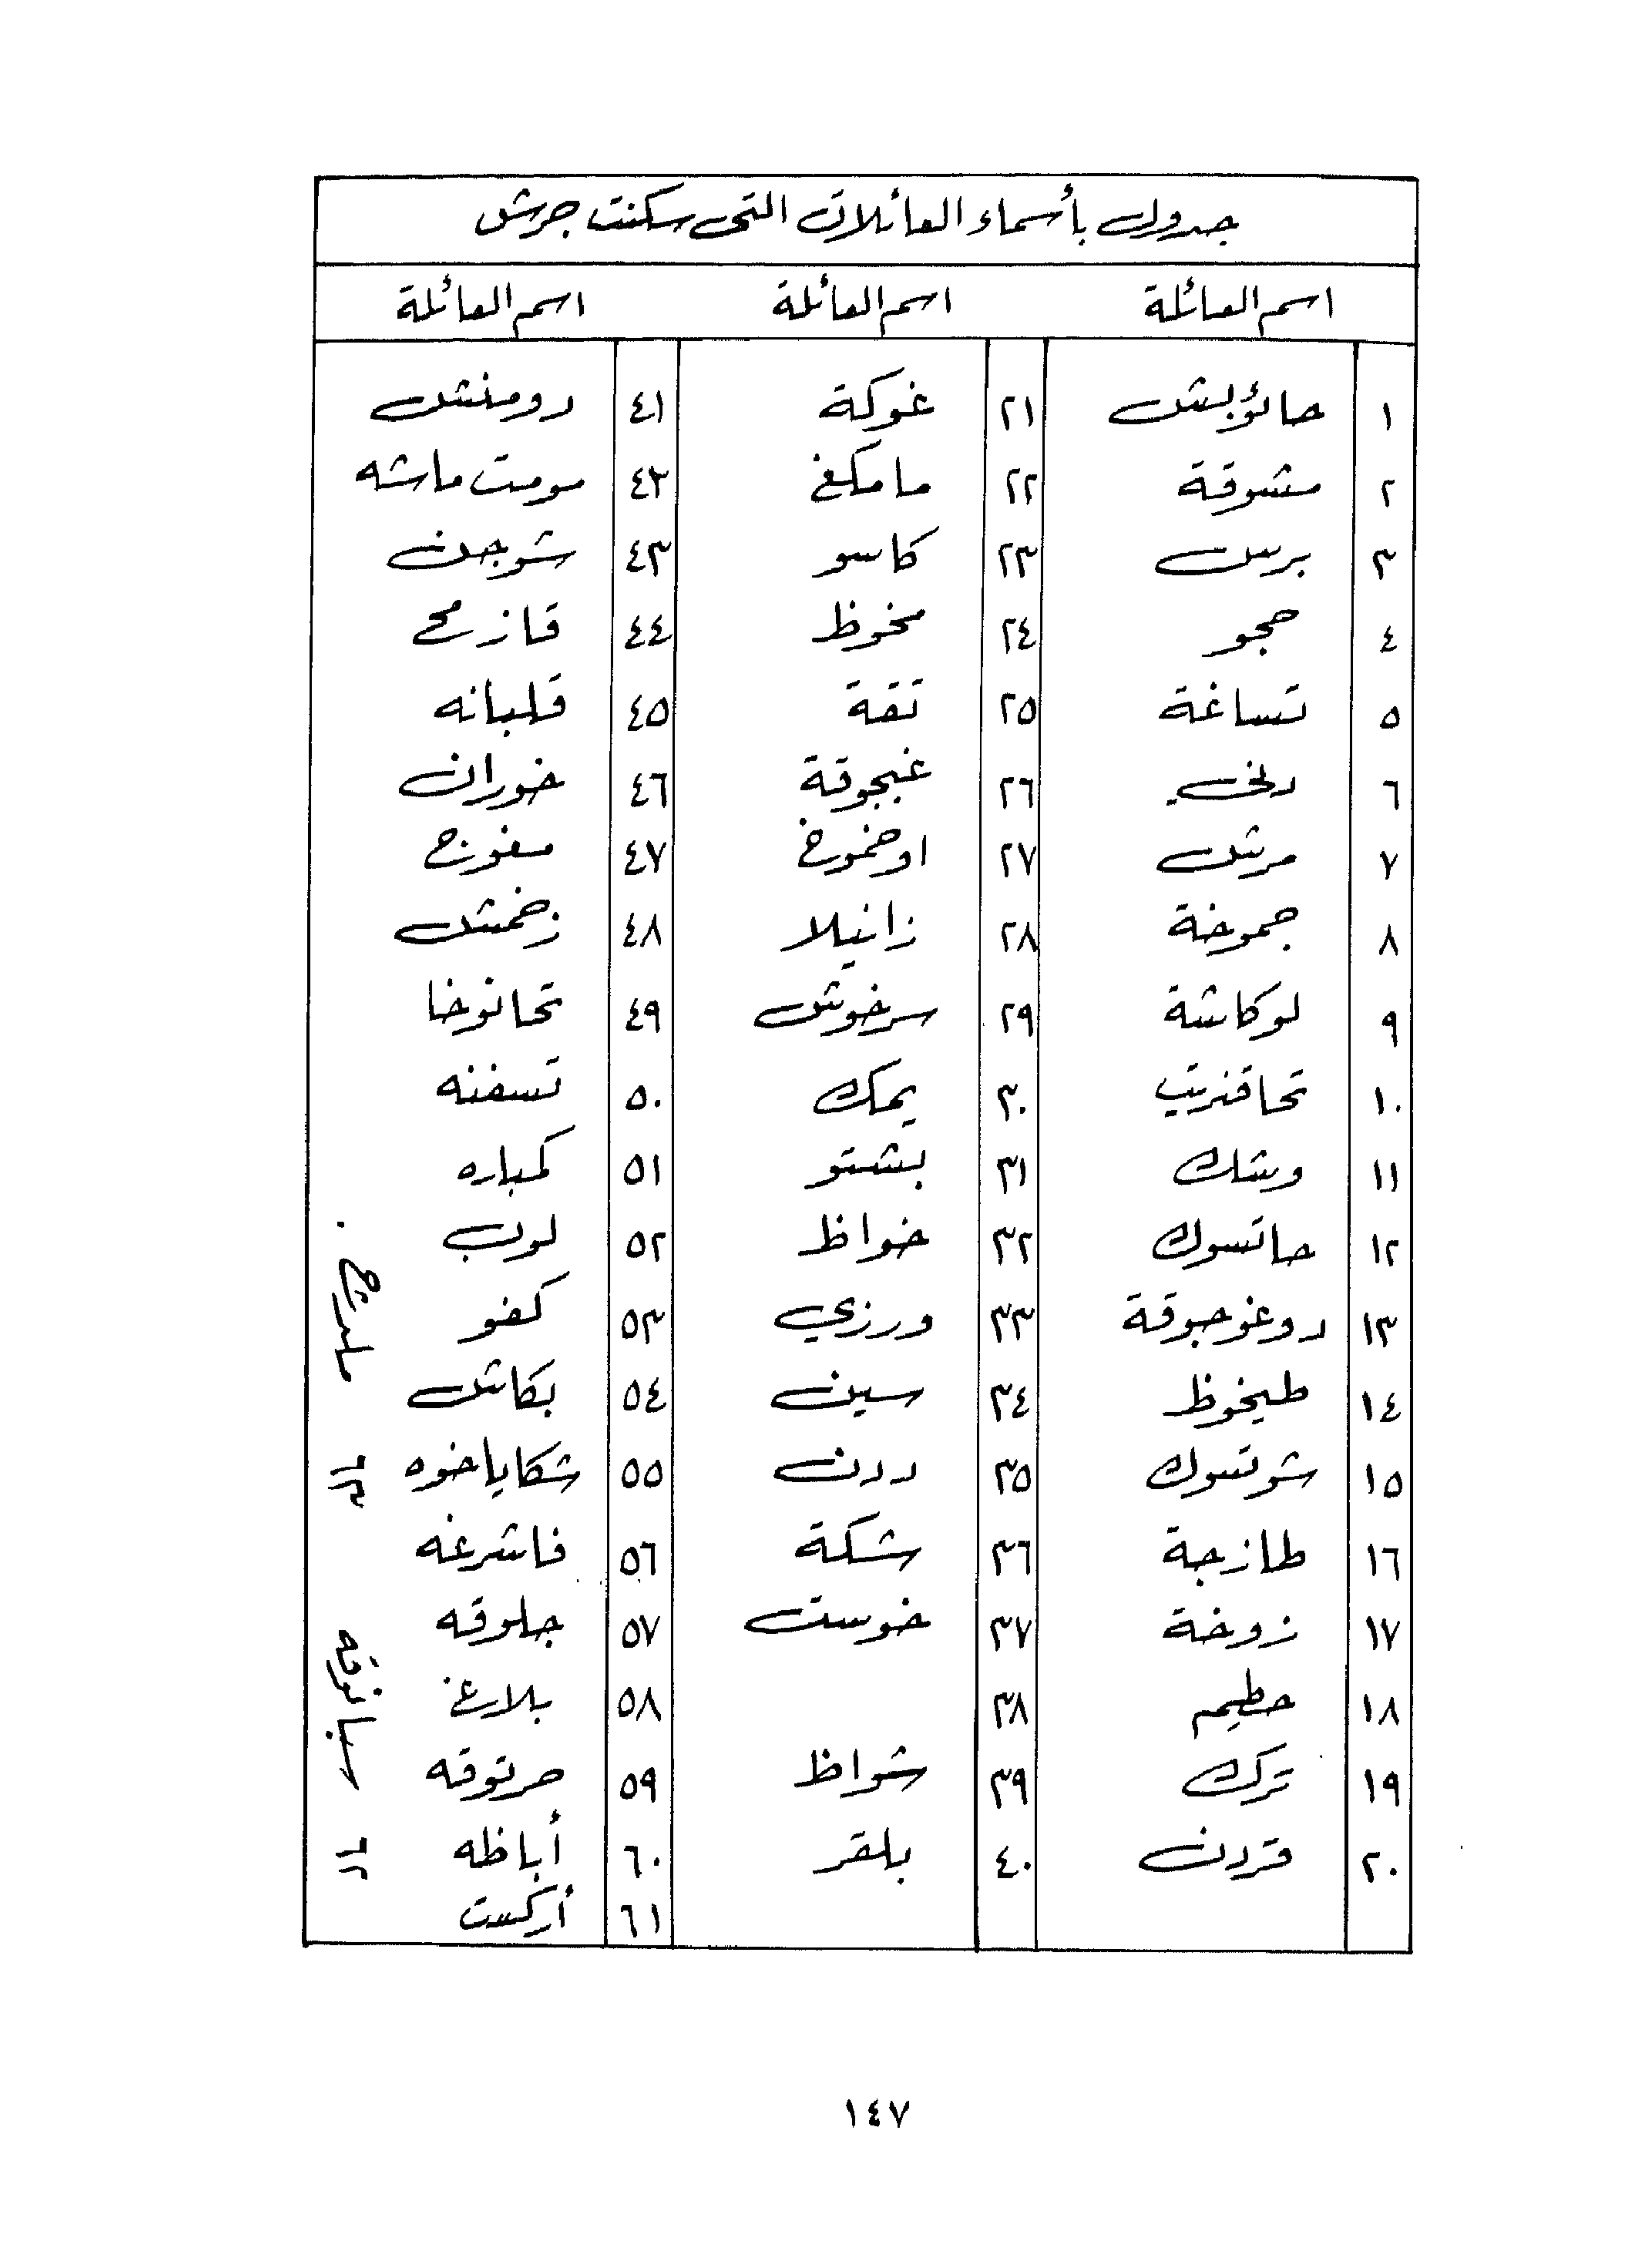 جدول بأسماء العائلات التي سكنت جرش
اسم العائلة اسم العائلة اسم العائلة
١ حاتؤبش ٢١ غوكة ٤١ دومنش
٢ مشوقة ٢٢ مامكغ ٤٢ مومت ماشه
٣ برسك ٢٣ كاسو ٤٣ شوجن
٤ حجو ٢٤ مخوظ ٤٤ قازمح
٥ تساغة ٢٥ تقة ٤٥ قلبانه
٦ ٢٦ غبجوقة ٤٦ خوران
٧ مرتك ٢٧ اوخموخ ٤٧ مفوزج
٨ جموخة ٢٨ زانيلا ٤٨ زخمشك
٩ لوكاشة ٢٩ سرخوش ٤٩ تحانوخا
١٠ تحاقنريتب ٣٠ يمك ٥٠ تسفنه
١١ وشك ٣١ بشتو ٥١ كمباره
١٢ حاتسوك ٣٢ خواظ ٥٢ لوب
١٣ دوغوجوقة ٣٣ ورزي ٥٣ كفو
١٤ طيخوظ ٣٤ سين ٥٤ بكاش
١٥ شوتسوك ٣٥ ددن ٥٥ شكاياخوه
١٦ طازجة ٣٦ شكة ٥٦ فاشرغه
١٧ زوخة ٣٧ خوست ٥٧ جلوقه
١٨ حطيم ٣٨ ٥٨ بلارغ
١٩ ترك ٣٩ شواظ ٥٩ حرتوقه
٢٠ قردن ٤٠ بلقر ٦٠ أباظه
٦١ أركست
٦٢ سبانوقه
٦٣
١٤٧